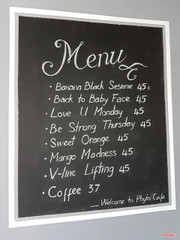 Menu
• Banana Black Sesame 45
• Back to Baby Face 45
• Love U Monday 45
• Be Strong Thursday 45
• Sweet Orange 45
• Mango Madness 45
• V-line Lifting 45
• Coffee 37
Welcome to Phyto Cafe